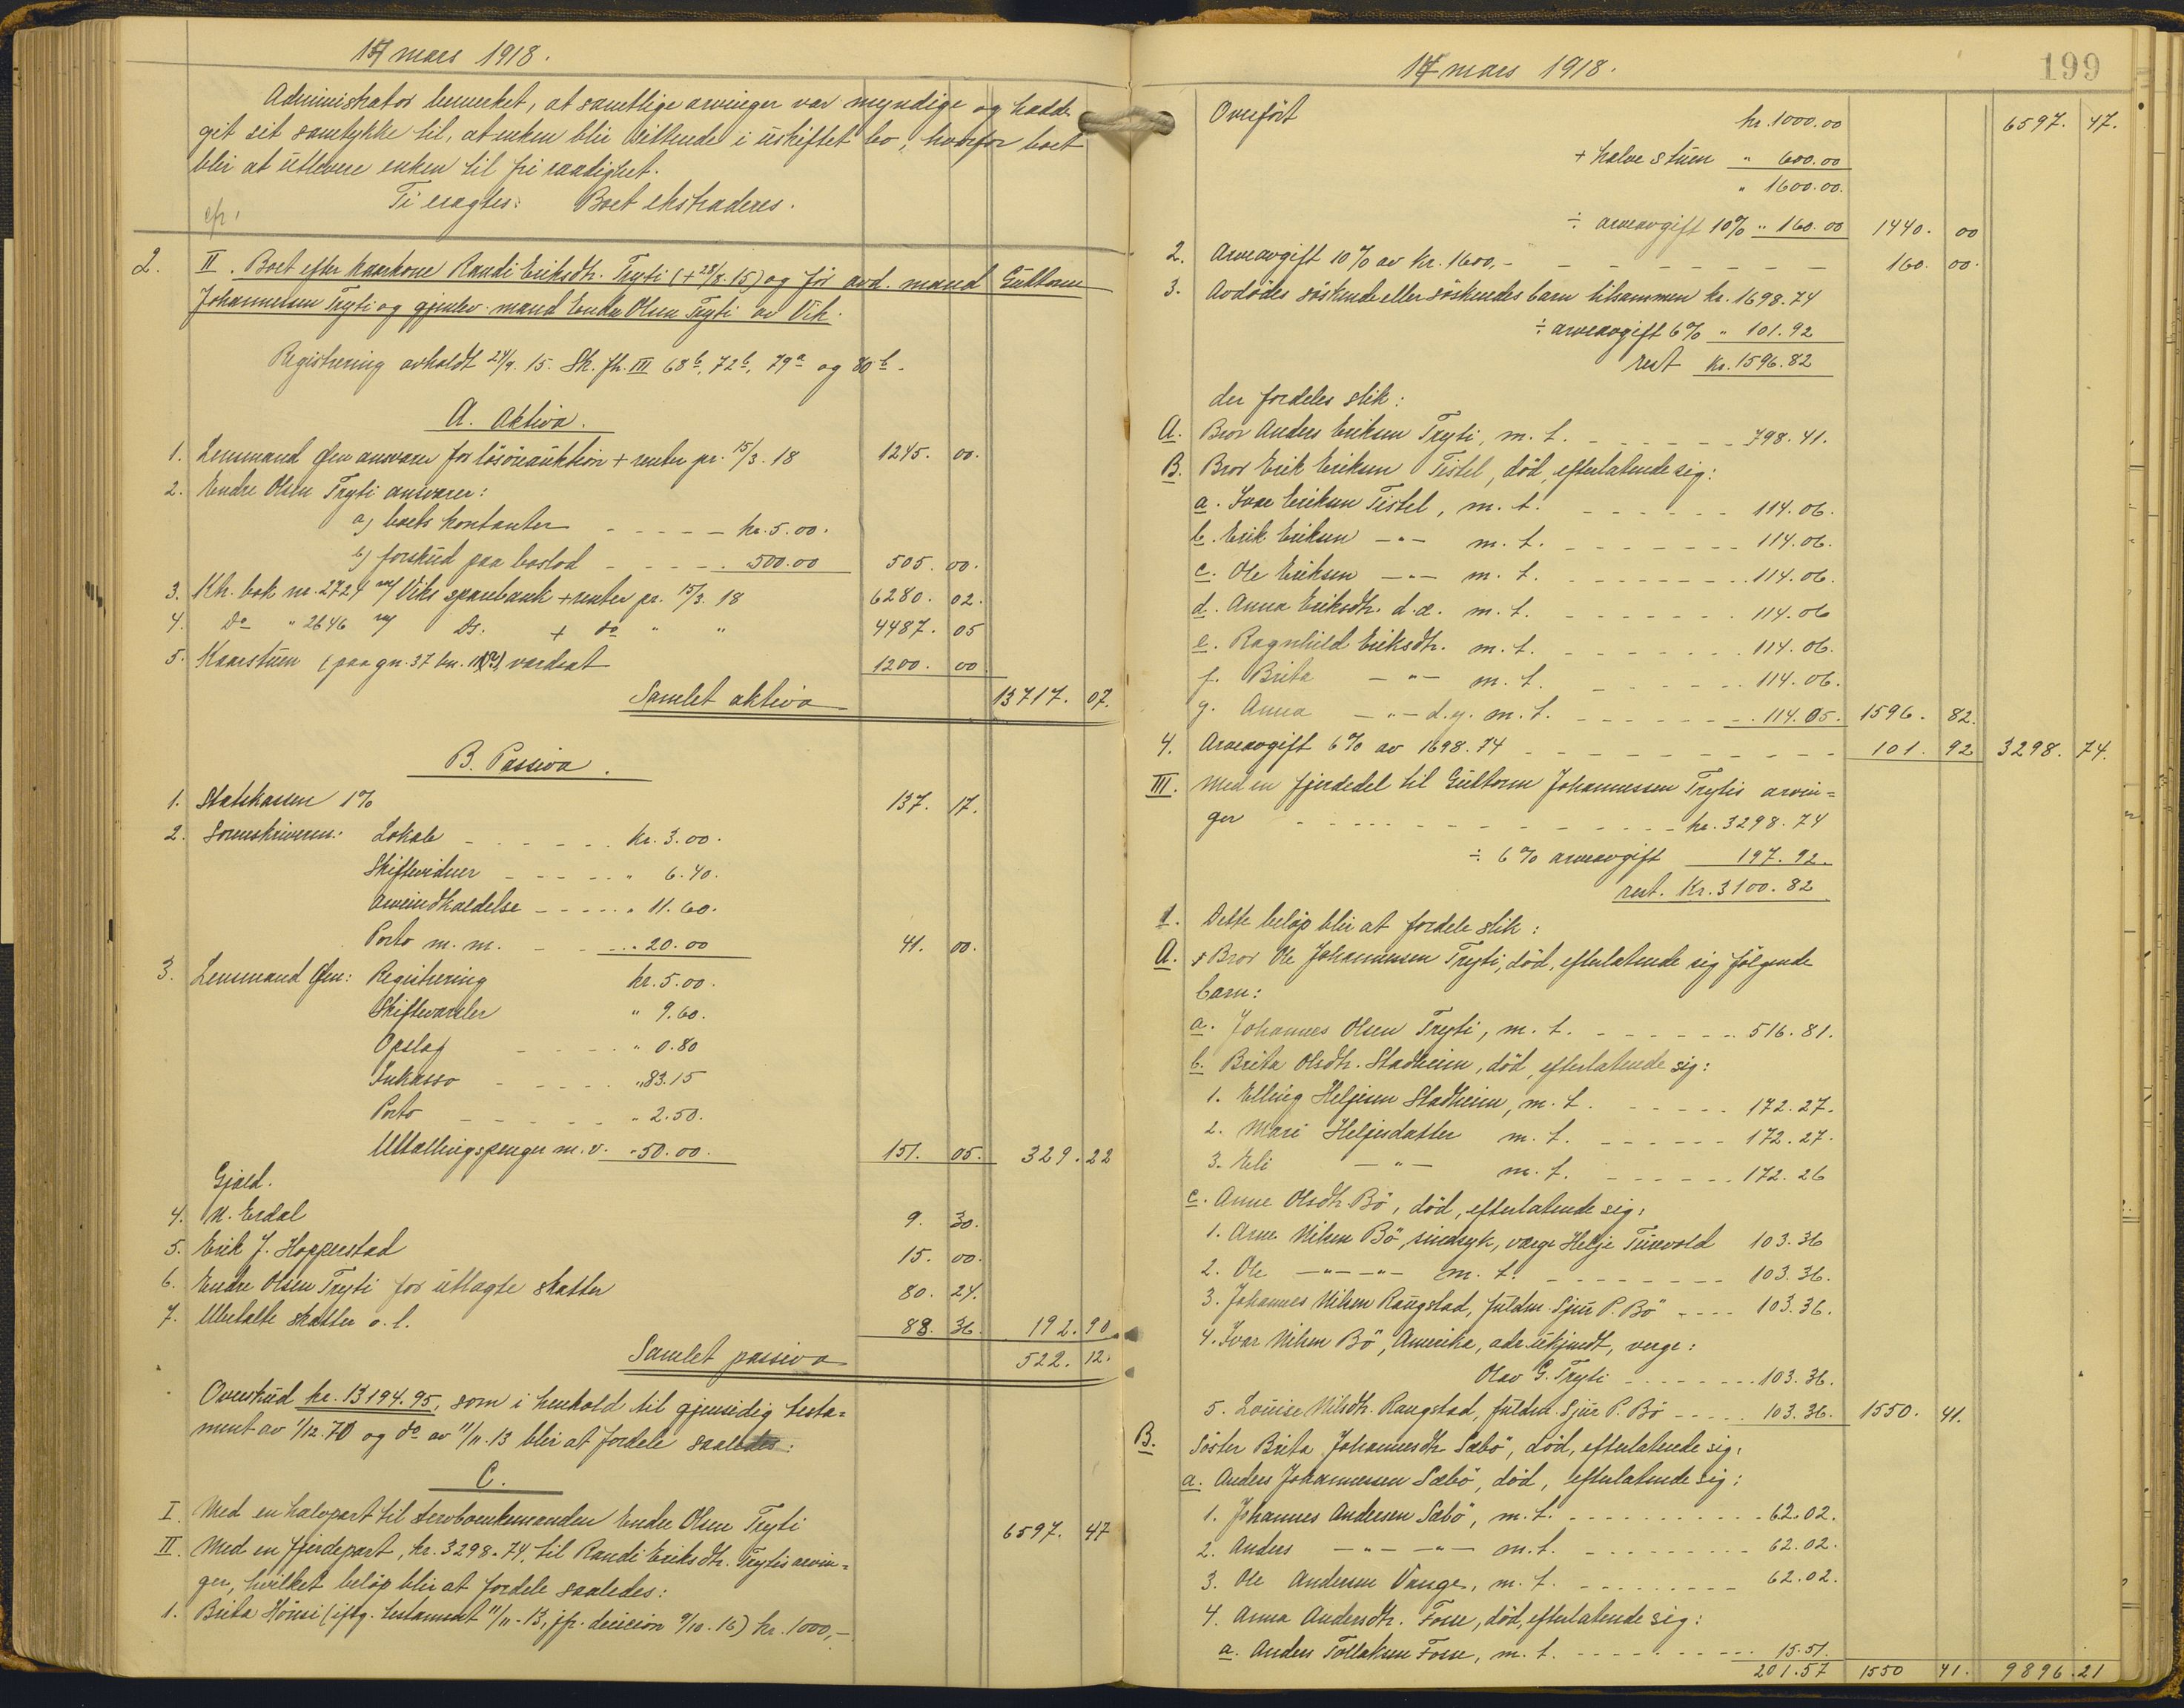 17 mars 1918.
Administrator bemerket, at samtlige arvinger var myndige og hadde
git sit samtykke til, at enken blir sittende i uskiftet bo, hvorfor boet
blir at utlevere enken til fri raadighet.
Ti eragtes: Boet ekstraderes.
cfr.
2. II. Boet efter kaarkone Randi Eriksdtr. Tryti (+28/8.15) og før avd. mand Guttorm
Johannessen Tryti og gjenlev. mand Endre Olsen Tryti av Vik.
Registrering avholdt 24/9.15. Sk. fh. III 68b, 72b, 79a og 80b.
A. Aktiva.
1. Lensmand Øen ansvarer for løsøreauktion + renter pr. 15/3.18 1245. 00.
2. Endre Olsen Tryti ansvarer:
a) boets kontanter - - - - kr. 5.00.
b) forskud paa boslod - - - - " 500.00 505. 00.
3. Kh. bok nr. 2724 m/ Viks sparebank + renter pr. 15/3.18 6280. 02.
4. Do " 2646 m/ Ds. + do " " 4487. 05
5. Kaarstuen (paa gn. 37 bn. ) verdsat 1200. 00
Samlet aktiva 13717. 07.
B. Passiva.
1. Statskassen 1% 137. 17.
2. Sorenskriveren: Lokale - - - - - kr. 3.00.
Skiftevidner - - - - - " 6.40.
Arveindkaldelse - - - - - " 11.60.
Porto m. m. - - - " 20.00 41. 00.
3. Lensmand Øen: Registrering kr. 5.00.
Skiftevarsler " 9.60.
Opslag - - - - " 0.80
Inkasso - - - - - " 83.15
Porto - - - - - " 2.50.
Uttællingspenger m. v. " 50.00. 151. 05. 329. 22
Gjæld.
4. N. Erdal 9. 30.
5. Erik J. Hopperstad 15. 00.
6. Endre Olsen Tryti for utlagte skatter 80. 24.
7. Ubetalte skatter o. l. 88. 36. 192. 90
Samlet passiva 522. 12.
Overskud kr. 13194.95, som i henhold til gjensidig testa=
ment av 1/12.70 og do av 11/11.13 blir at fordele saaledes:
C.
I. Med en halvpart til stervboenkemanden Endre Olsen Tryti 6597. 47
II. Med en fjerdepart, kr. 3298.74, til Randi Eriksdtr. Trytis arvin=
ger, hvilket beløp blir at fordele saaledes:
1. Brita Hønsi (iflg. testament 11/11-13, jfr. decision 9/10.16) kr. 1000,-
17 mars 1918.
199
Overført kr. 1000.00 6597. 47.
+ halve stuen " 600.00
" 1600.00.
÷ arveavgift 10% " 160.00 1440. 00
2. Arveavgift 10% av kr. 1600,- - - - - - - - 160. 00.
3. Avdødes søskende eller søskendes barn tilsammen kr. 1698.74
÷ arveavgift 6% " 101.92
rest kr. 1596.82
der fordeles slik:
A. Bror Anders Eriksen Tryti, m. t. - - - - - - 798.41.
B. Bror Erik Eriksen Tistel, død, efterlatende sig:
a. Ivar Eriksen Tistel, m. t. - - - - - - 114.06.
b. Erik Eriksen -"- m. t. - - - - - - - 114.06.
c. Ole Eriksen -"- m. t. - - - - - - - 114.06.
d. Anna Eriksdtr. d. æ. m. t. - - - - - - 114.06
e. Ragnhild Eriksdtr. m. t. - - - - - - - 114.06.
f. Brita -"- m. t. - - - - - - 114.06.
g. Anna -"- d. y. m. t. - - - - - - - 114.05. 1596. 82.
4. Arveavgift 6% av 1698.74 - - - - - - - - - 101. 92 3298. 74.
III. Med en fjerdedel til Guttorm Johannessen Trytis arvin=
ger - - - - - - - - - - kr. 3298.74
÷ 6% arveavgift 197.92.
rest. Kr. 3100.82
1. Dette beløp blir at fordele slik:
A. + Bror Ole Johannessen Tryti, død, efterlatende sig følgende
barn:
a. Johannes Olsen Tryti, m. t. - - - - - - 516.81.
b. Brita Olsdtr. Stadheim, død, efterlatende sig:
1. Elling Heljesen Stadheim, m. t. - - - - - 172.27.
2. Mari Heljesdatter m. t. - - - - - - 172.27.
3. Eli -"- m. t. - - - - - - 172.26
c. Anne Olsdtr. Bö, død, efterlatende sig:
1. Arne Nilsen Bö, sindsyk, værge Helje Turvold 103.36
2. Ole -"- -"- m. t. - - - - - - - - 103.36.
3. Johannes Nilsen Raugstad, fuldm. Sjur P. Bö - - - - 103.36.
4. Ivar Nilsen Bö, Amerika, adr. ukjendt, verge:
Olav G. Tryti - - - - - - - 103.36.
5. Louise Nilsdtr. Raugstad, fuldm. Sjur P. Bö - - - - 103.36. 1550. 41.
B. Søster Brita Johannesdtr. Sæbö, død, efterlatende sig:
a. Anders Johannessen Sæbö, død, efterlatende sig:
1. Johannes Andersen Sæbö, m. t. - - - - - - - - - 62.02.
2. Anders -"- -"- m. t. - - - - - - - - 62.02.
3. Ole Andersen Vange, m. t. - - - - - - - - 62.02.
4. Anna Andersdtr. Fosse, død, efterlatende sig:
a. Anders Tollaksen Fosse, m. t. - - - - - - - - - 15.51.
201.57 1550 41. 9896. 21